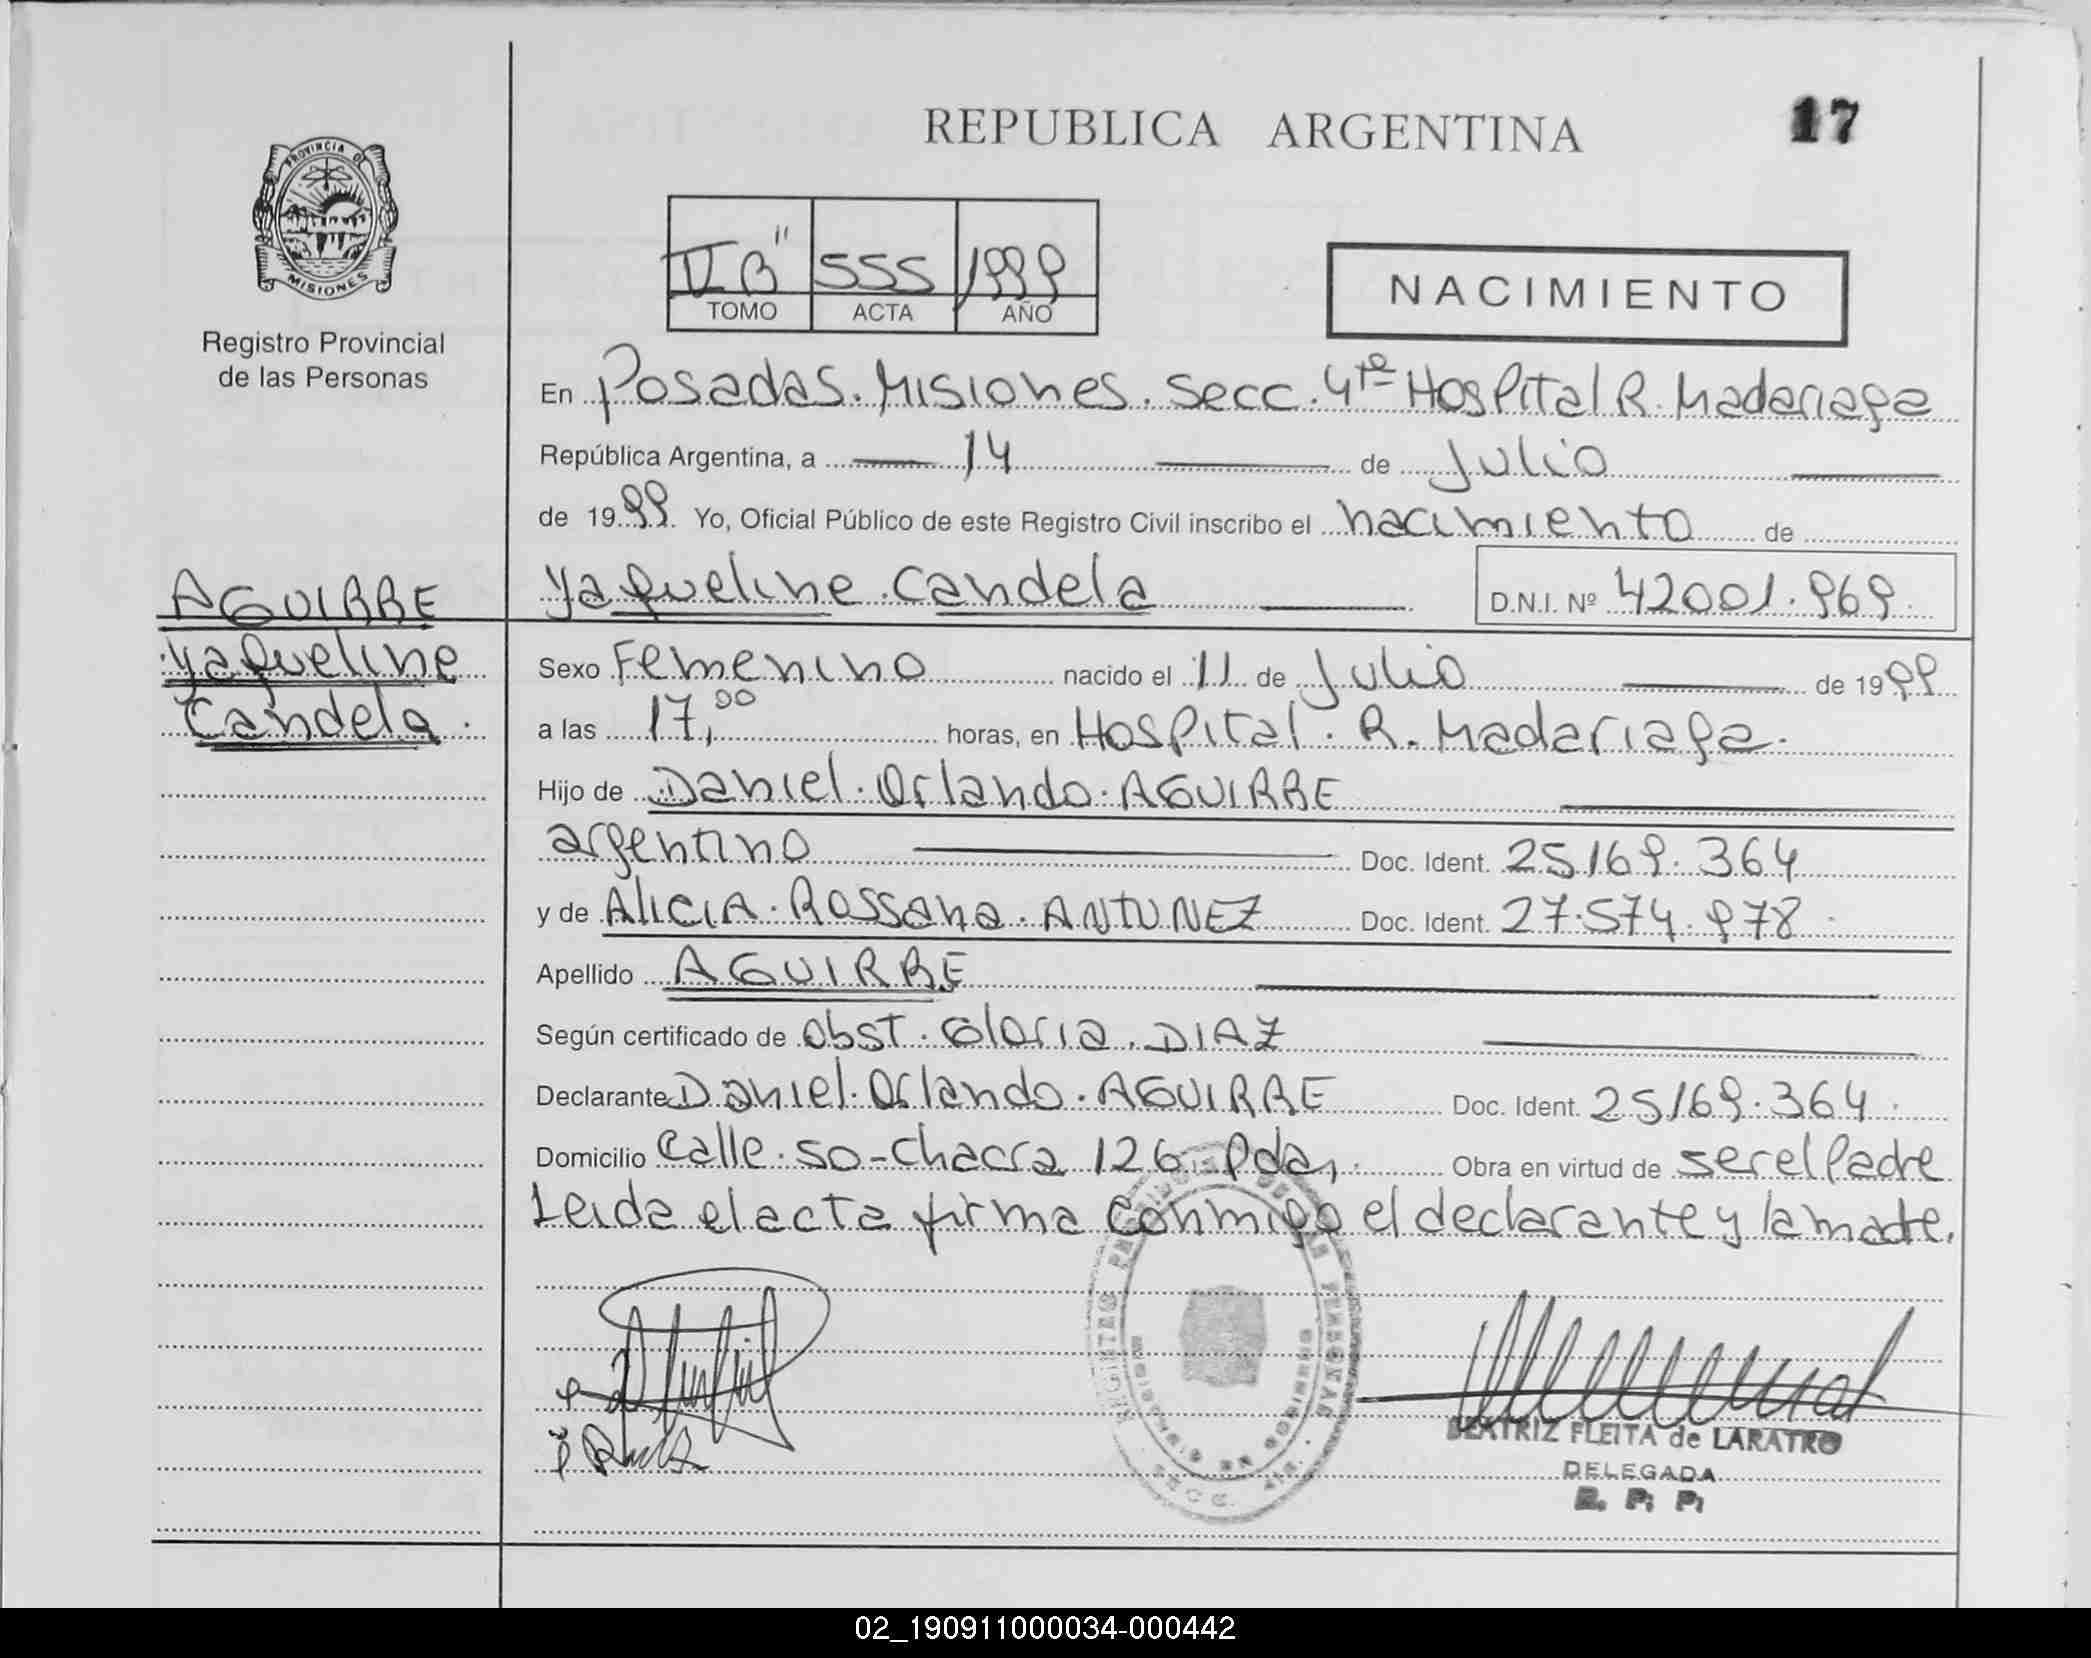 REPUBLICA ARGENTINA
17
PROVINCIA DE
MISIONES
Registro Provincial
de las Personas
II B" 555 1999
TOMO ACTA AÑO
NACIMIENTO
En Posadas. Misiones. Secc. 4ta Hospital R. Madariaga
República Argentina, a 14 de Julio
de 1999. Yo, Oficial Público de este Registro Civil inscribo el nacimiento de
AGUIRRE
Yaqueline
Candela.
Yaqueline. Candela D.N.I. Nº 42001.969.
Sexo Femenino nacido el 11 de Julio de 1999
a las 17,00 horas, en Hospital. R. Madariaga.
Hijo de Daniel. Orlando. AGUIRRE
argentino Doc. Ident. 25169.364
y de Alicia. Rossana. ANTUNEZ Doc. Ident. 27.574.978.
Apellido AGUIRRE
Según certificado de Obst. Gloria. DIAZ
Declarante Daniel. Orlando. AGUIRRE Doc. Ident. 25169.364.
Domicilio Calle. 50-chacra 126 Pdas. Obra en virtud de ser el Padre
Leida el acta firma conmigo el declarante y la madre.
BEATRIZ FLEITA de LARATRO
DELEGADA
R. P. P.
02_190911000034-000442